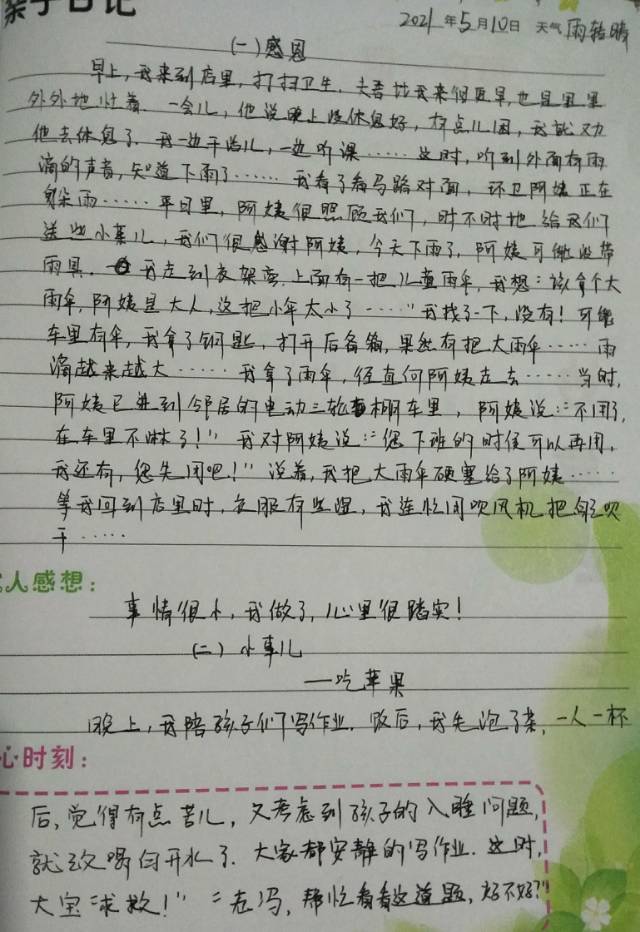 亲子日记
2021年5月10日 天气 雨转晴
(一)感恩
早上,我来到店里,打扫卫生.夫君比我来得更早,也是里里
外外地忙着.一会儿,他说晚上没休息好,有点儿困,我就又劝
他去休息了,我一边干活儿,一边听课……这时,听到外面有雨
滴的声音,知道下雨了……我看了看马路对面,环卫阿姨正在
躲雨……平日里,阿姨很照顾我们,时不时地给我们
送些小菜儿,我们很感谢阿姨,今天下雨了,阿姨可能没带
雨具.我走到衣架旁,上面有一把儿童雨伞,我想:该拿个大
雨伞,阿姨是大人,这把小伞太小了……"我找了一下,没有!可能
车里有伞,我拿了钥匙,打开后备箱,果然有把大雨伞……雨
滴越来越大……我拿了雨伞,径直向阿姨走去……当时,
阿姨已进到邻居的电动三轮棚车里,阿姨说:"不用了,
在车里不淋了!"我对阿姨说:"您下班的时候可以再用,
我还有,您先用吧!"说着,我把大雨伞硬塞给了阿姨……
等我回到店里时,衣服有些湿,我连忙用吹风机把它吹
干……
人感想:
事情很小,我做了,心里很踏实!
(二)小事儿
—吃苹果
晚上,我陪孩子们写作业.饭后,我先泡了茶,一人一杯
心时刻:
后,觉得有点苦儿,又考虑到孩子的入睡问题,
就改喝白开水了.大家都安静的写作业.这时,
大宝求救!""老冯,帮忙看看这道题,好不好?"